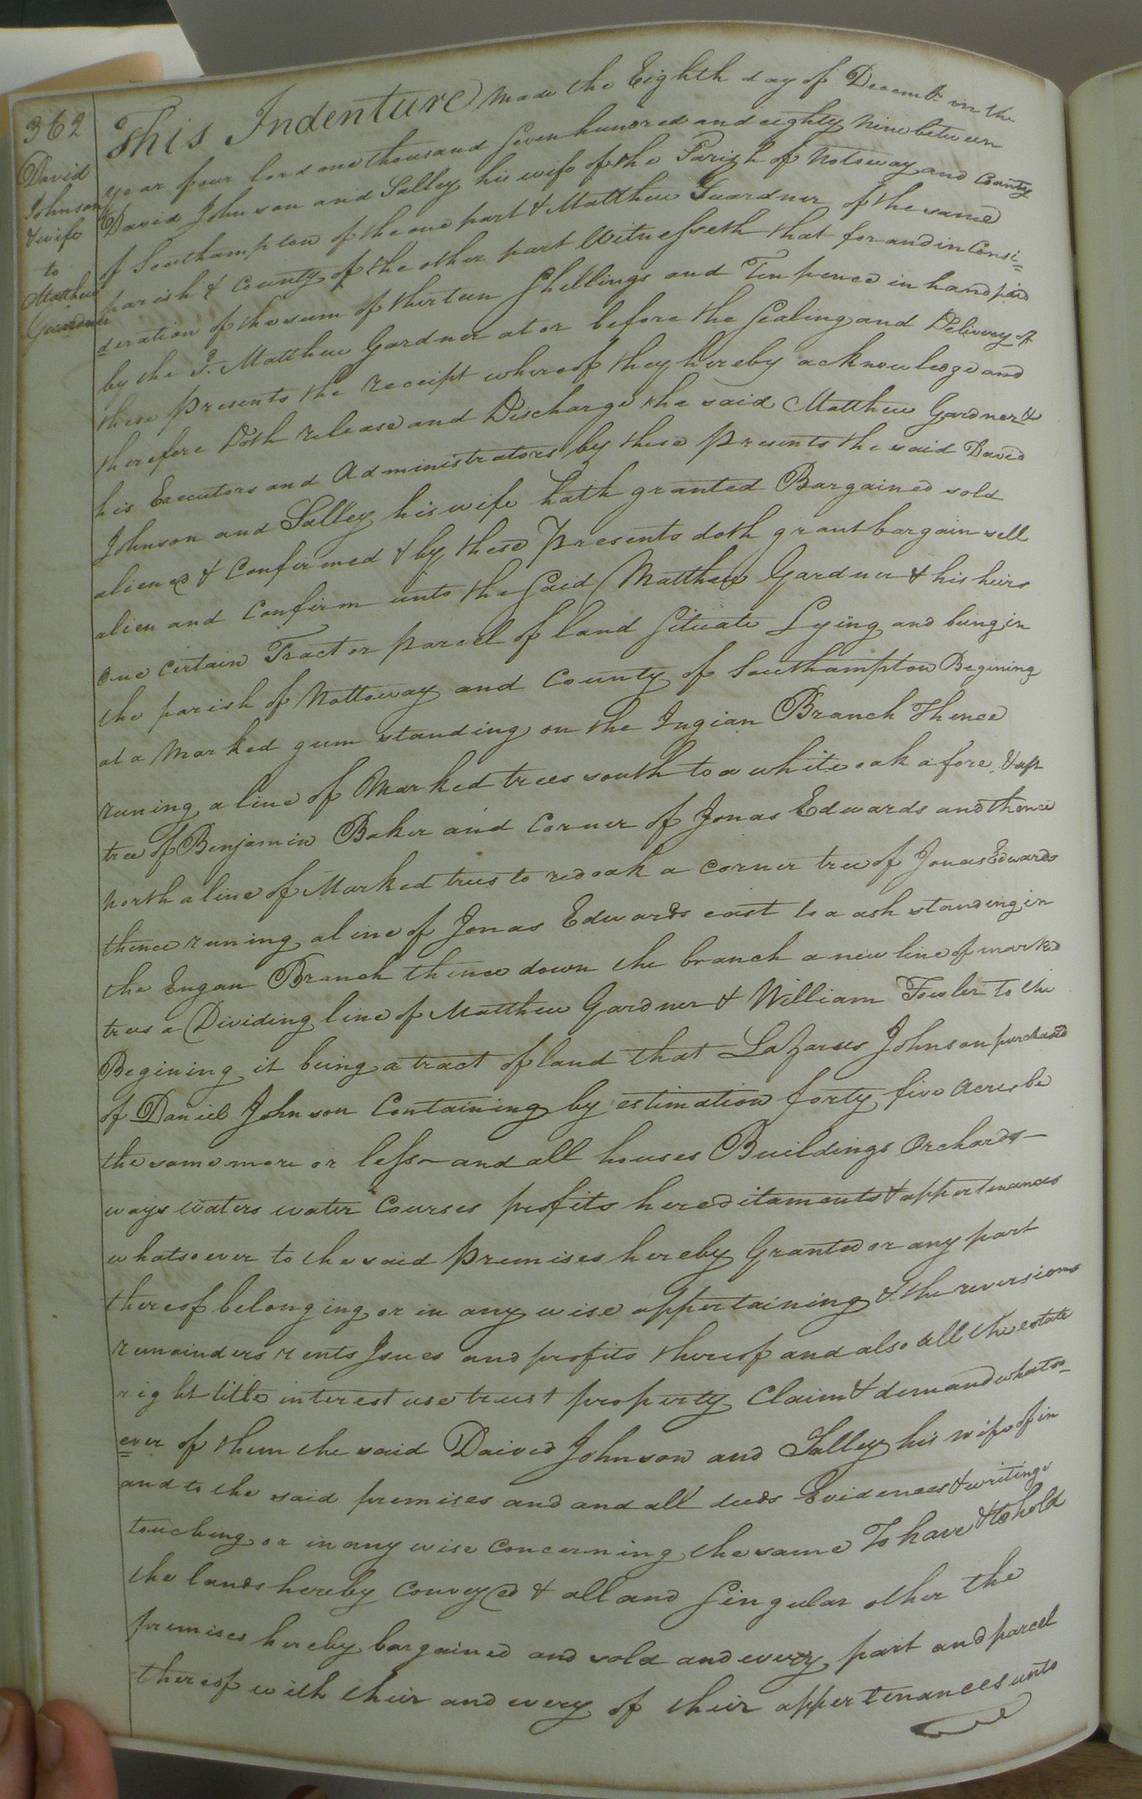 362
David
Johnson
& wife
to
Matthew
Guardner
This Indenture made the Eighth day of Decemb.r in the
year four lord one thousand Seven hundred and eighty Nine between
David Johnson and Salley his wife of the Parish of Notoway and County
of Southampton of the one part & Matthew Guardner of the same
parish & County of the other part Witnesseth that for and in Consi=
deration of the sum of thirteen Shillings and Ten pence in hand paid
by the S. Matthew Gardner at or before the Sealing and Delivery of
these Presents the receipt whereof they hereby acknowledge and
therefore Doth release and Discharge the said Matthew Gardner &
his Executors and Administrators by these presents the said David
Johnson and Salley his wife hath granted Bargained sold
aliened & Confirmed & by these Presents doth grant bargain sell
alien and Confirm unto the Said Matthew Gardner & his heirs
one certain Tract or parcel of land Situate Lying and being in
the parish of Nottoway and County of Southampton Begining
at a Marked gum standing on the Ingian Branch Thence
runing a line of Marked trees south to a white oak a fore & aft
tree of Benjamin Baker and Corner of Jonas Edwards and thence
north a line of Marked trees to red oak a corner tree of Jonas Edwards
thence runing a line of Jonas Edwards east to a ash standing in
the Engan Branch thence down the branch a new line of marked
trees a Dividing line of Matthew Gardner & William Fowler to the
Begining it being a tract of land that Lazarus Johnson purchased
of Daniel Johnson Containing by estimation forty five Acres be
the same more or less and all houses Buildings Orchards
ways waters water Courses profits hereditaments & appertenances
whatsoever to the said Premises hereby Granted or any part
thereof belonging or in any wise appertaining & the reversions
remainders rents Isues and profits thereof and also all the estate
right title interest use trust property Claim & demand whatso=
ever of them the said Daived Johnson and Salley his wife of in
and to the said premises and and all deeds Evidences & writings
touching or in any wise concerning the same To have & to hold
the lands hereby Conveyed & all and Singular other the
premises hereby bargained and sold and every part and parcel
thereof with their and every of their appertenances unto